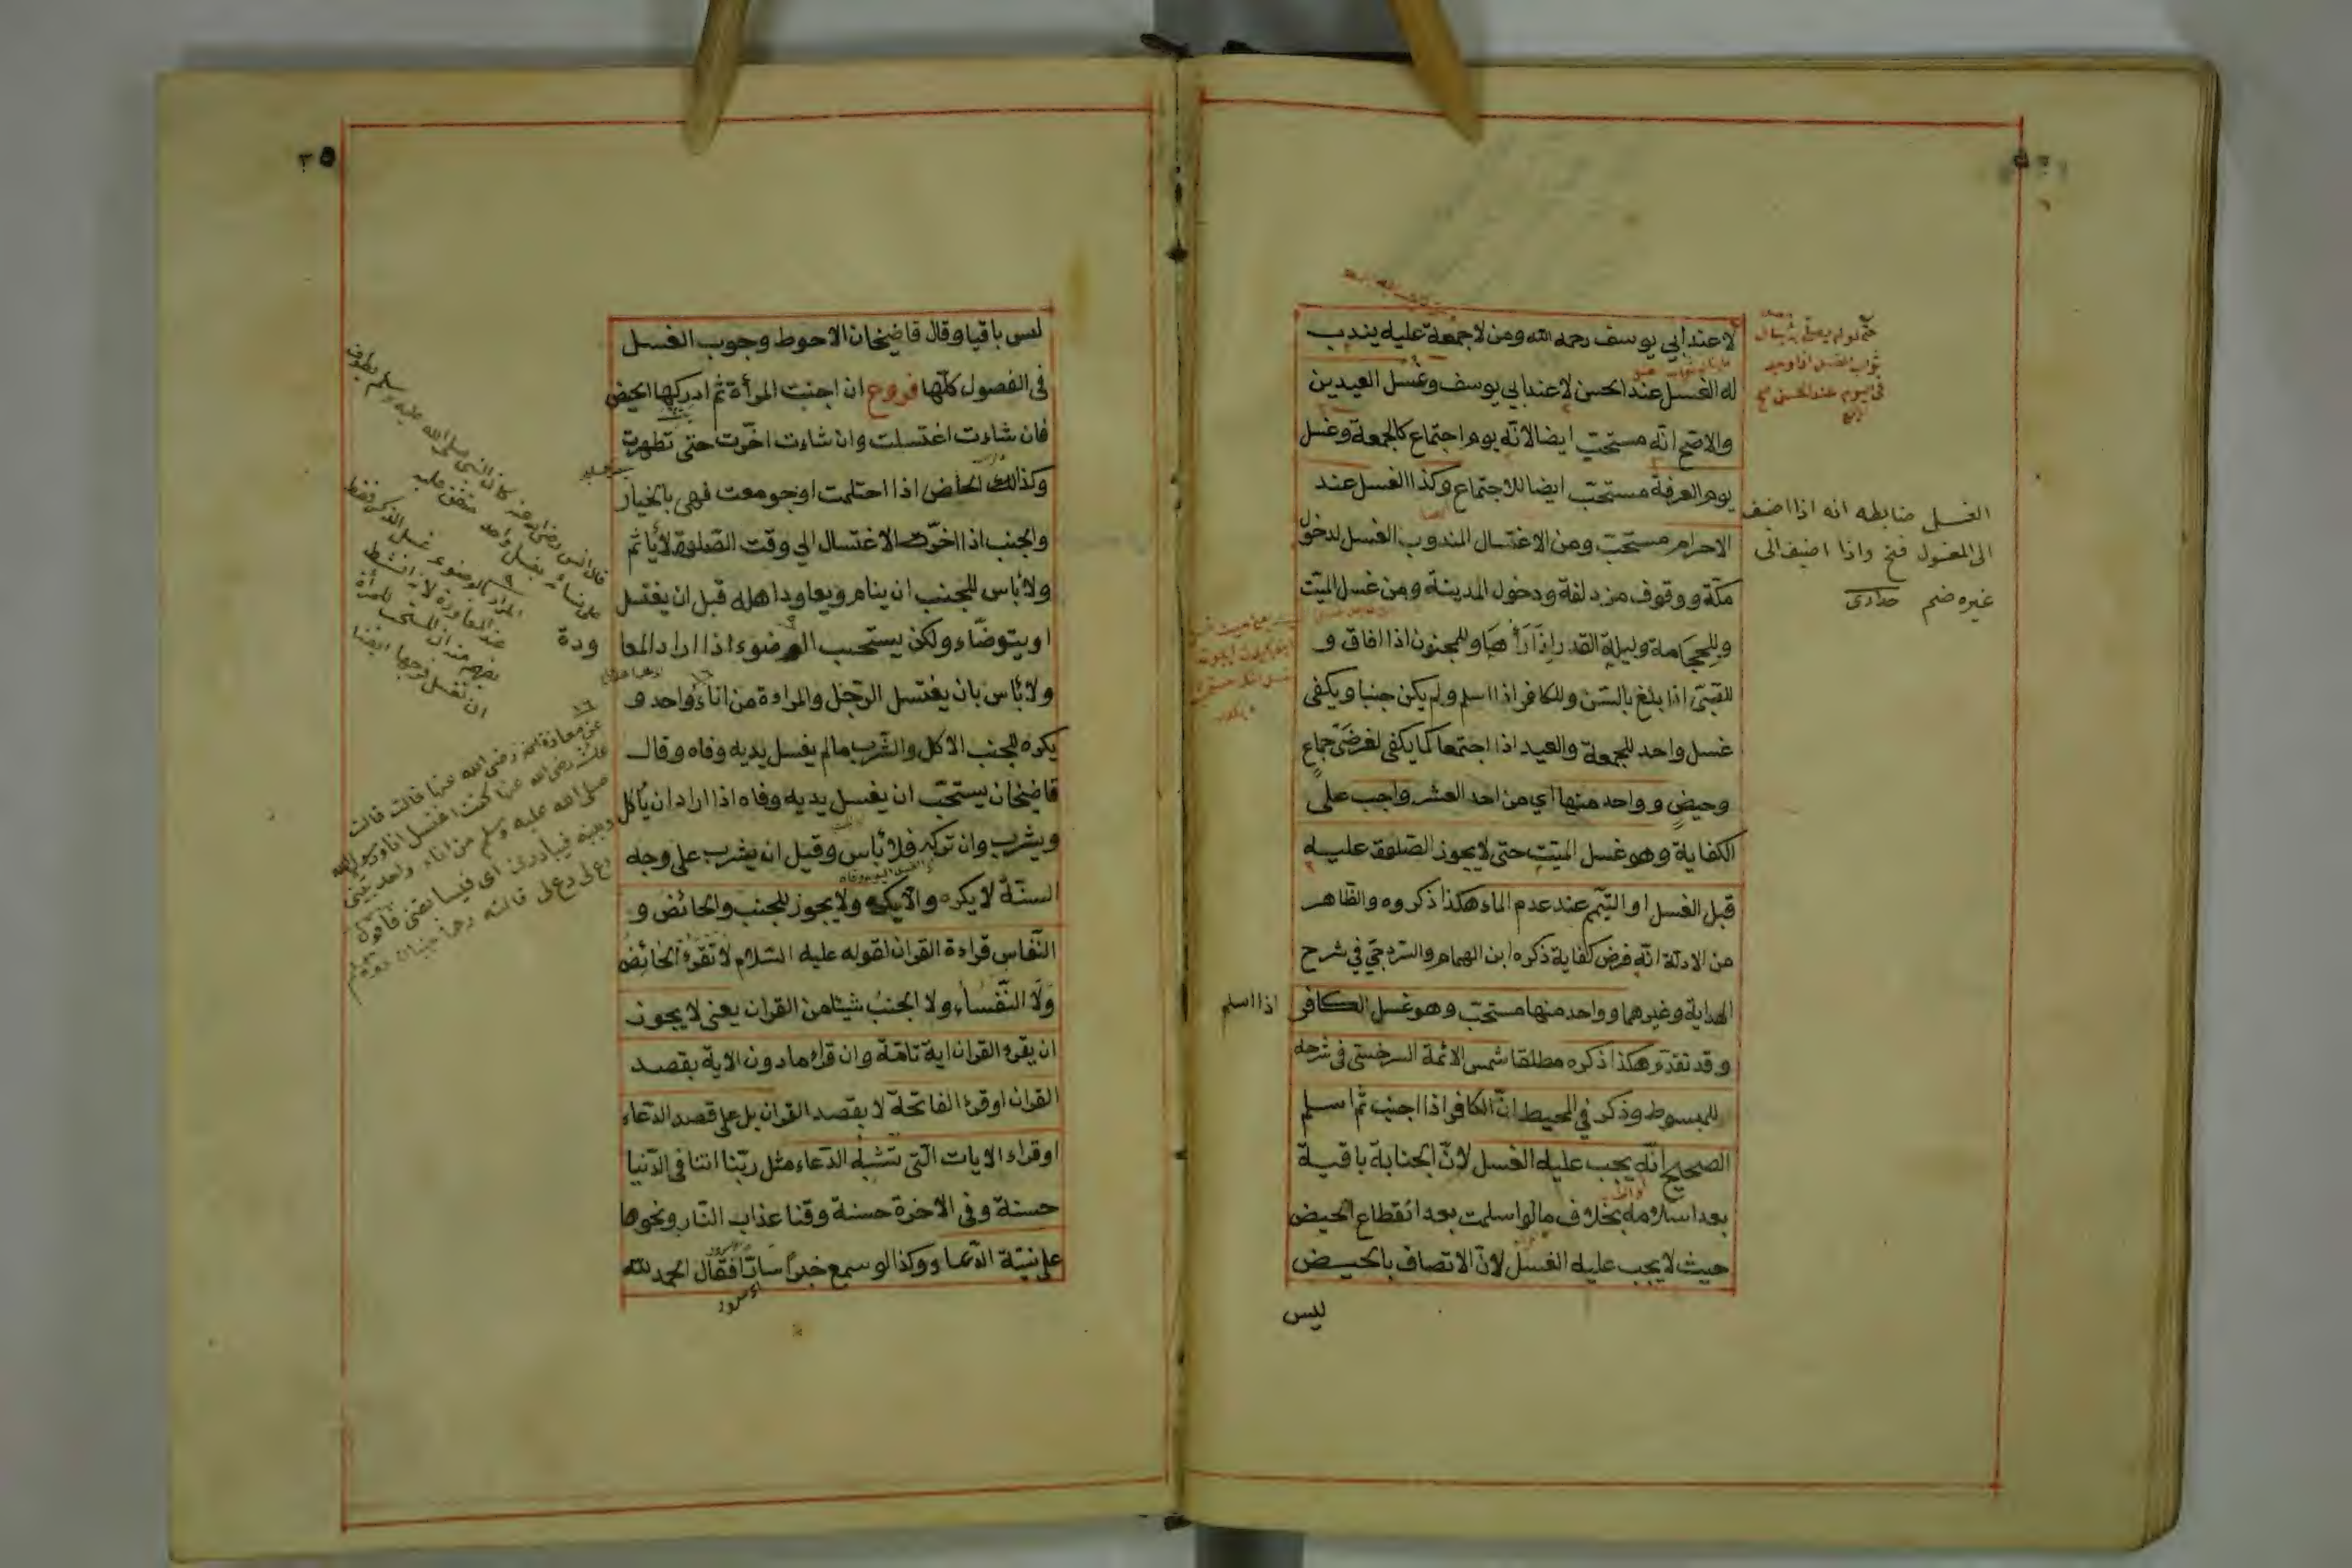 لا عند ابي يوسف رحمه الله ومن لا جمعة عليه يندب
له الغسل عند الحسن لا عند ابي يوسف وغسل العيدين
والاصح انّه مستحبّ ايضا لانّه يوم اجتماع كالجمعة وغسل
يوم العرفة مستحبّ ايضا للاجتماع وكذا الغسل عند
الاحرام مستحبّ ومن الاغتسال المندوب الغسل لدخول
مكّة ووقوف مزدلفة ودخول المدينة ومن غسل الميّت
وللحجامة وليلة القدر اذا رأها وللمجنون اذا افاق و
للصّبيّ اذا بلغ بالسّن وللكافر اذا اسلم ولم يكن جنبا ويكفى
غسل واحد للجمعة والعيد اذا اجتمعا كما يكفى لفرضَىْ جماعٍ
وحيضٍ وواحد منها اي من احد العشر واجب على
الكفاية وهو غسل الميّت حتى لا يجوز الصّلوة عليه
قبل الغسل او التيمّم عند عدم الماء هكذا ذكروه والظّاهر
من الادلّة انّه فرض كفاية ذكره ابن الهمام والسّروجيّ في شرح
الهداية وغيرهما وواحد منها مستحبّ وهو غسل الكافر
اذا اسلم
وقد تقدّم هكذا ذكره مطلقا شمس الائمّة السرخسىّ فى شرحه
للمبسوط وذكر في المحيط انّ الكافر اذا اجنب ثمّ اسلم
الصحيح انّه يجب عليه الغسل لانّ الجنابة باقية
بعد اسلامه بخلاف ما لو اسلمت بعد انقطاع الحيض
حيث لا يجب عليه الغسل لانّ الاتصاف بالحيض
ليس
الغسل ضابطه انه اذا اضيف
الى المغسول فتح واذا اضيف الى
غيره ضم حدادى
ليس باقيا وقال قاضيخان الاحوط وجوب الغسل
فى الفصول كلّها فروع ان اجنبت المرأة ثمّ ادركها الحيض
فان شاءت اغتسلت وان شاءت اخّرت حتى تطهرت
وكذلك الحائض اذا احتلمت او جومعت فهى بالخيار
والجنب اذا اخّر الاغتسال الى وقت الصّلوة لا يأثم
ولا بأس للجنب ان ينام ويعاود اهله قبل ان يغتسل
او يتوضّاء ولكن يستحب الوضوء اذا اراد المعا
ودة
ولا بأس بان يغتسل الرّجل والمراءة من اناءٍ واحد و
يكره للجنب الاكل والشّرب ما لم يغسل يديه وفاه وقال
قاضيخان يستحبّ ان يغسل يديه وفاه اذا اراد ان يأكل
ويشرب وان تركه فلا بأس وقيل ان يشرب على وجه
السنّة لا يكره والا يكره ولا يجوز للجنب والحائض و
النّفاس قراءة القران لقوله عليه السّلام لا تقرء الحائِضُ
وَلَا النّفساء ولا الجنبُ شيئا من القران يعنى لا يجوز
ان يقرء القران اية تامّة وان قراء ما دون الاية بقصد
القران او قرء الفاتحة لا بقصد القران بل على قصد الدّعاء
او قراء الايات الّتى تشبه الدّعاء مثل ربّنا اتنا فى الدّنيا
حسنة وفى الاخرة حسنة وقنا عذاب النّار ونحوها
على نيّة الدّعاء وكذا لو سمع خبرًا سارّا فقال الحمد لله
قال انس رضى الله عنه كان النبى صلى الله عليه وسلم يطوف
على نسائه بغسل واحد متفق عليه
المراد بالوضوء غسل الذكر فقط
عند المعاودة لانه انشط
ان تغسل فرجها ايضا
عن معاذة رضى الله عنها قالت قالت
عائشة رضى الله عنها كنت اغتسل انا ورسول الله
صلى الله عليه وسلم من اناء واحد بينى
وبينه فيبادرنى اى فيسابقنى فاقول
دع لى دع لى